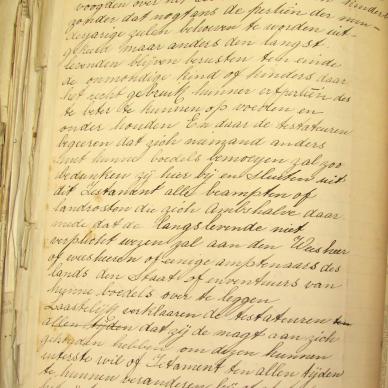 voogden over het
zonder dat nogtans de portien der min
derjarige zulen behoeven te worden uit
gekeerd maar anders den langst
levenden blijven berusten ten einde
de onmondige kind of kinders daar
het recht gebruik hunner erfportiën des
te beter te kunnen op voeden en
onder houden En daar de testateuren
begeren dat zich niemand anders
met hunne boedels bemoeyen zal zoo
bedanken zij hier bij en sluiten uit
dit Testament alle beampten of
landrosten die zich Ambshalve daar
mede dat de langslevende niet
verplicht wezen zal aan den Weesheer
of weesheeren of eenige amptenaars des
lands den Staat of inventuurs van
hunne boedels over te leggen
Laastelijk verklaaren de testateuren
allen tijden dat zij de magt aan zich
gehouden hebben om dezen hunnen
uiterste wil of Testament ten allen tijden
te kunnen veranderen bij